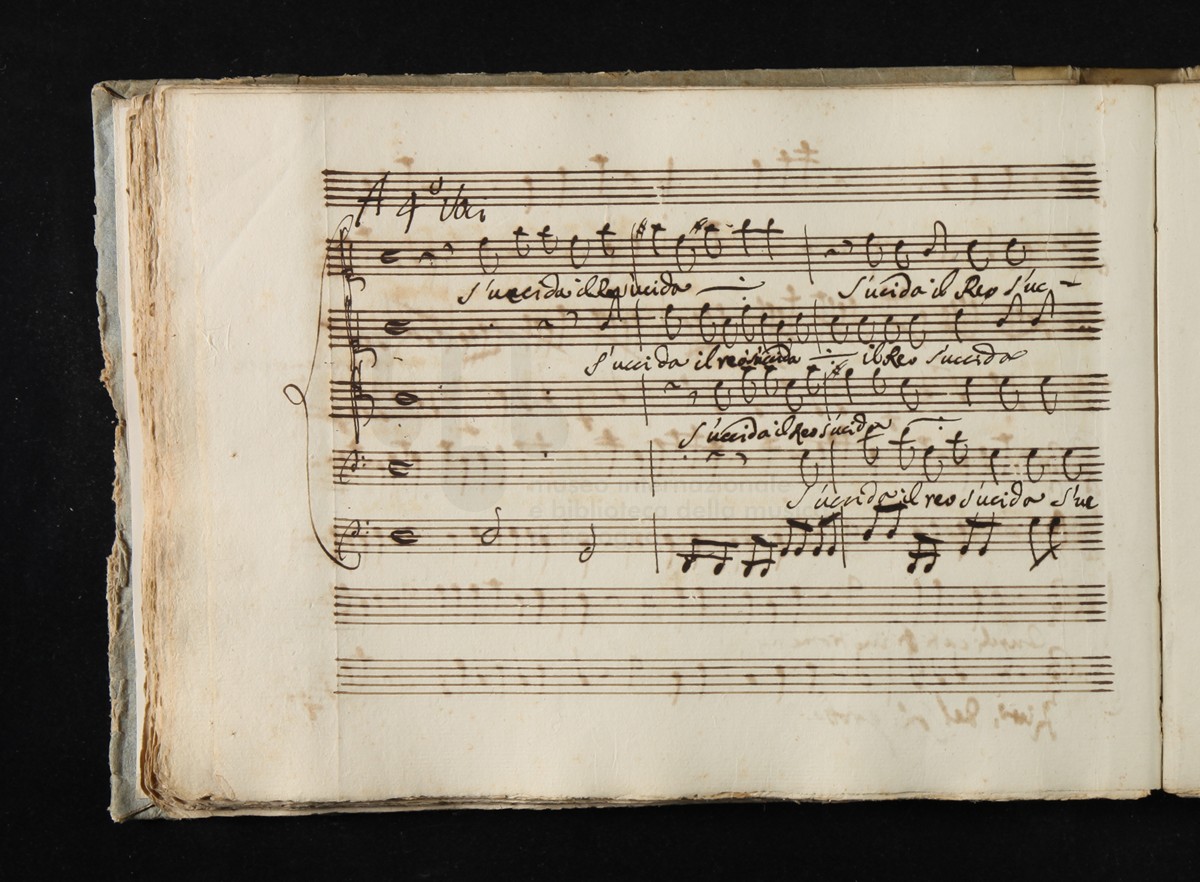 A 4º Voci
S'uccida il Reo s'ucida
S'ucida il Reo s'uc-
S'uccida il reo s'uccida il Reo s'uccida
S'uccida il Reo s'ucida
S'uccida il reo s'ucida s'uc
museo internazionale
e biblioteca della musica